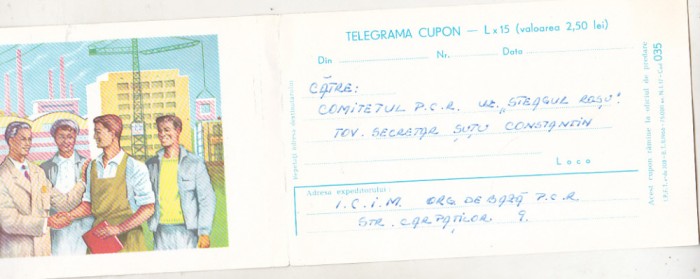 TELEGRAMA CUPON — Lx15 (valoarea 2,50 lei)
Din Nr. Data
CĂTRE:
COMITETUL P.C.R. UZ. „STEAGUL ROȘU”.
TOV. SECRETAR ȘUȚU CONSTANTIN
Loco
Adresa expeditorului:
I.C.I.M. ORG. DE BAZĂ P.C.R
STR. CARPAȚILOR 9.
adresa destinatarului
Acest cupon rămîne la oficiul de predare
035